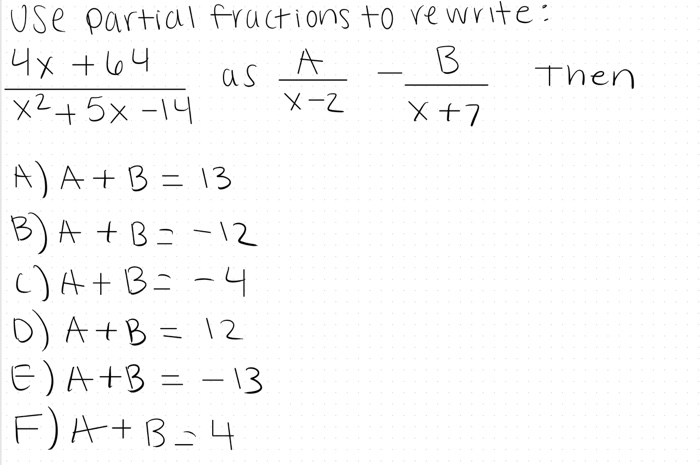 Use partial fractions to rewrite:
4x + 64 / x² + 5x - 14 as A / x - 2 - B / x + 7 Then
A) A + B = 13
B) A + B = -12
C) A + B = -4
D) A + B = 12
E) A + B = -13
F) A + B = 4